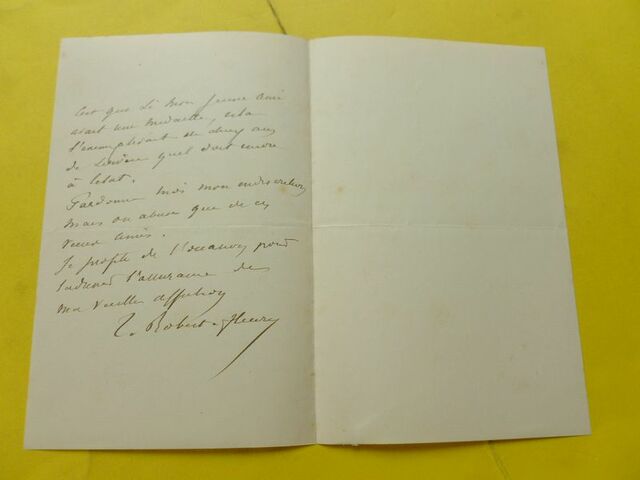 C'est que si mon jeune ami
avait une médaille, cela
l'exempterait de cinq ans
de service qu'il doit encore
à l'état.
Pardonnez moi mon indiscrétion
mais on abuse que de ses
vieux amis.
Je profite de l'occasion pour
l'assurance de
ma vieille affection
T. Robert-Fleury